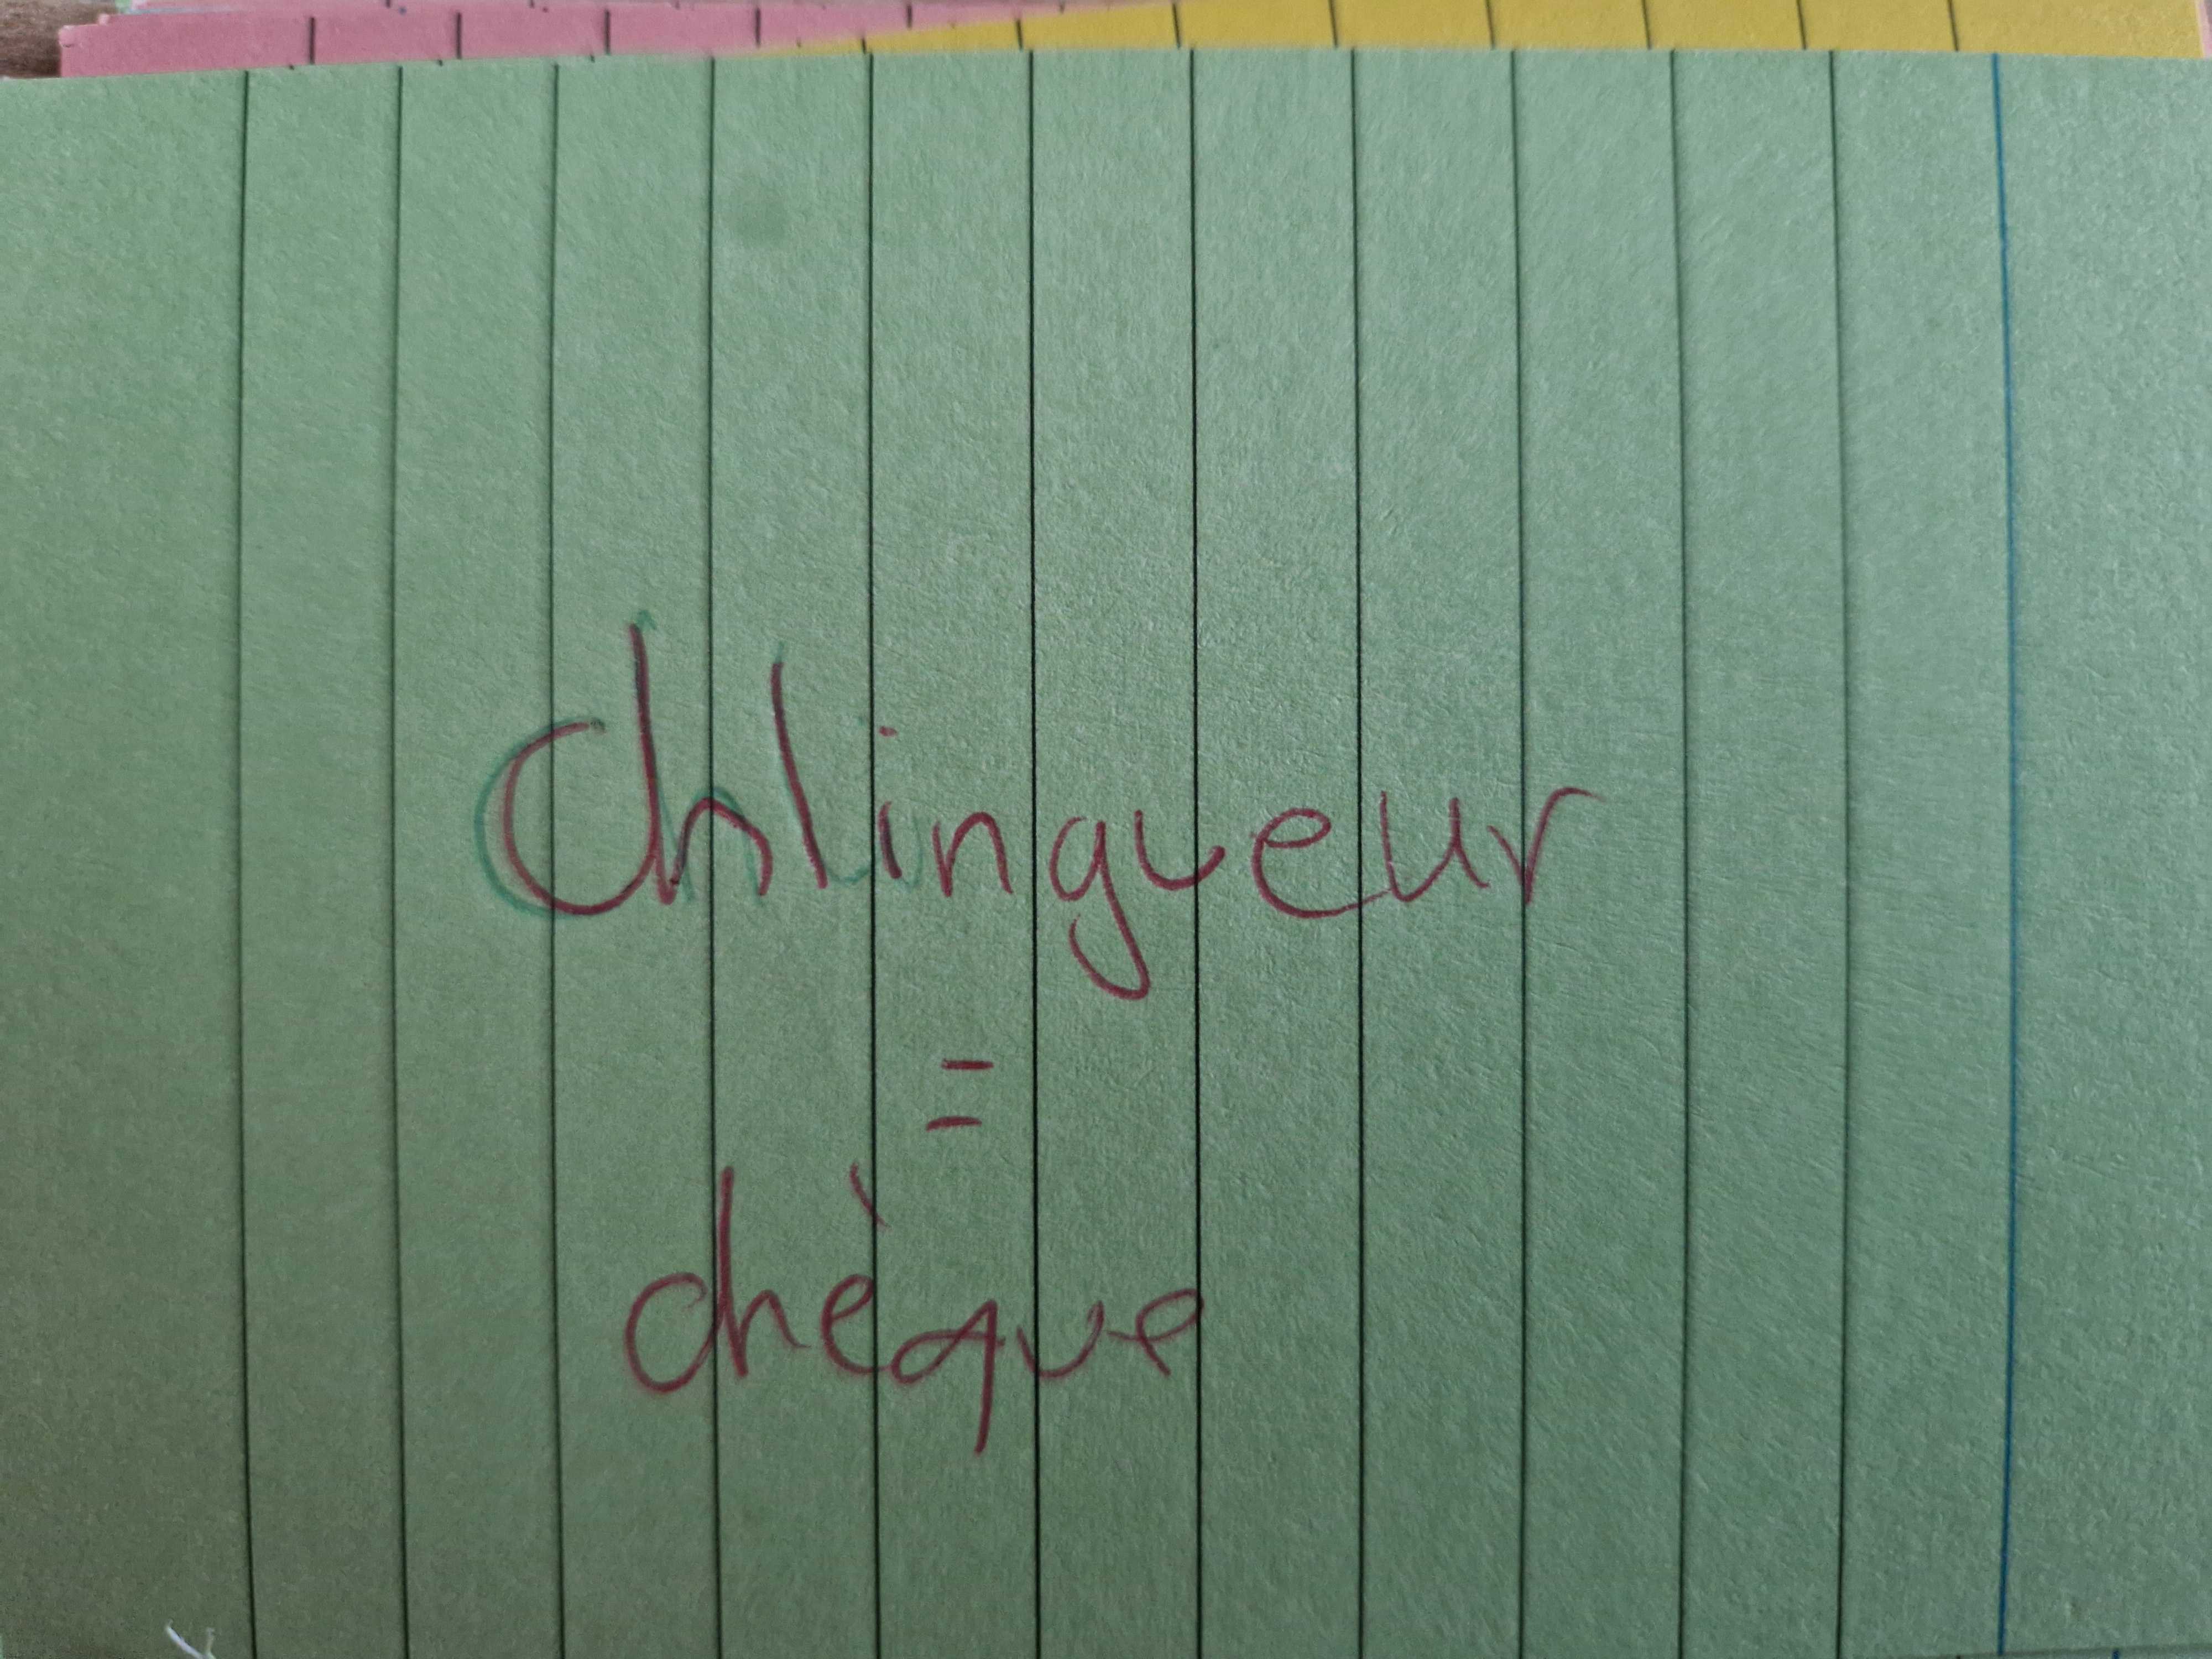 Chlingueur
=
chèque